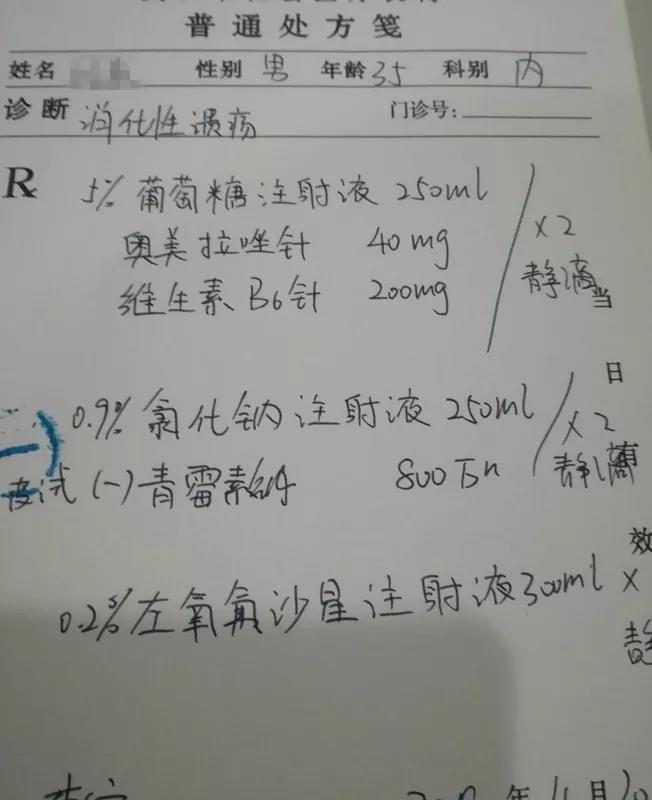 普通处方笺
姓名 性别 男 年龄 35 科别 内
诊断 消化性溃疡 门诊号:
R 5% 葡萄糖注射液 250ml
奥美拉唑针 40mg
维生素B6针 200mg
×2
静滴
当
日
有
效
0.9% 氯化钠注射液 250ml
皮试(一)青霉素钠 800万u
×2
静滴
0.2% 左氧氟沙星注射液 300ml ×
静
年 11月